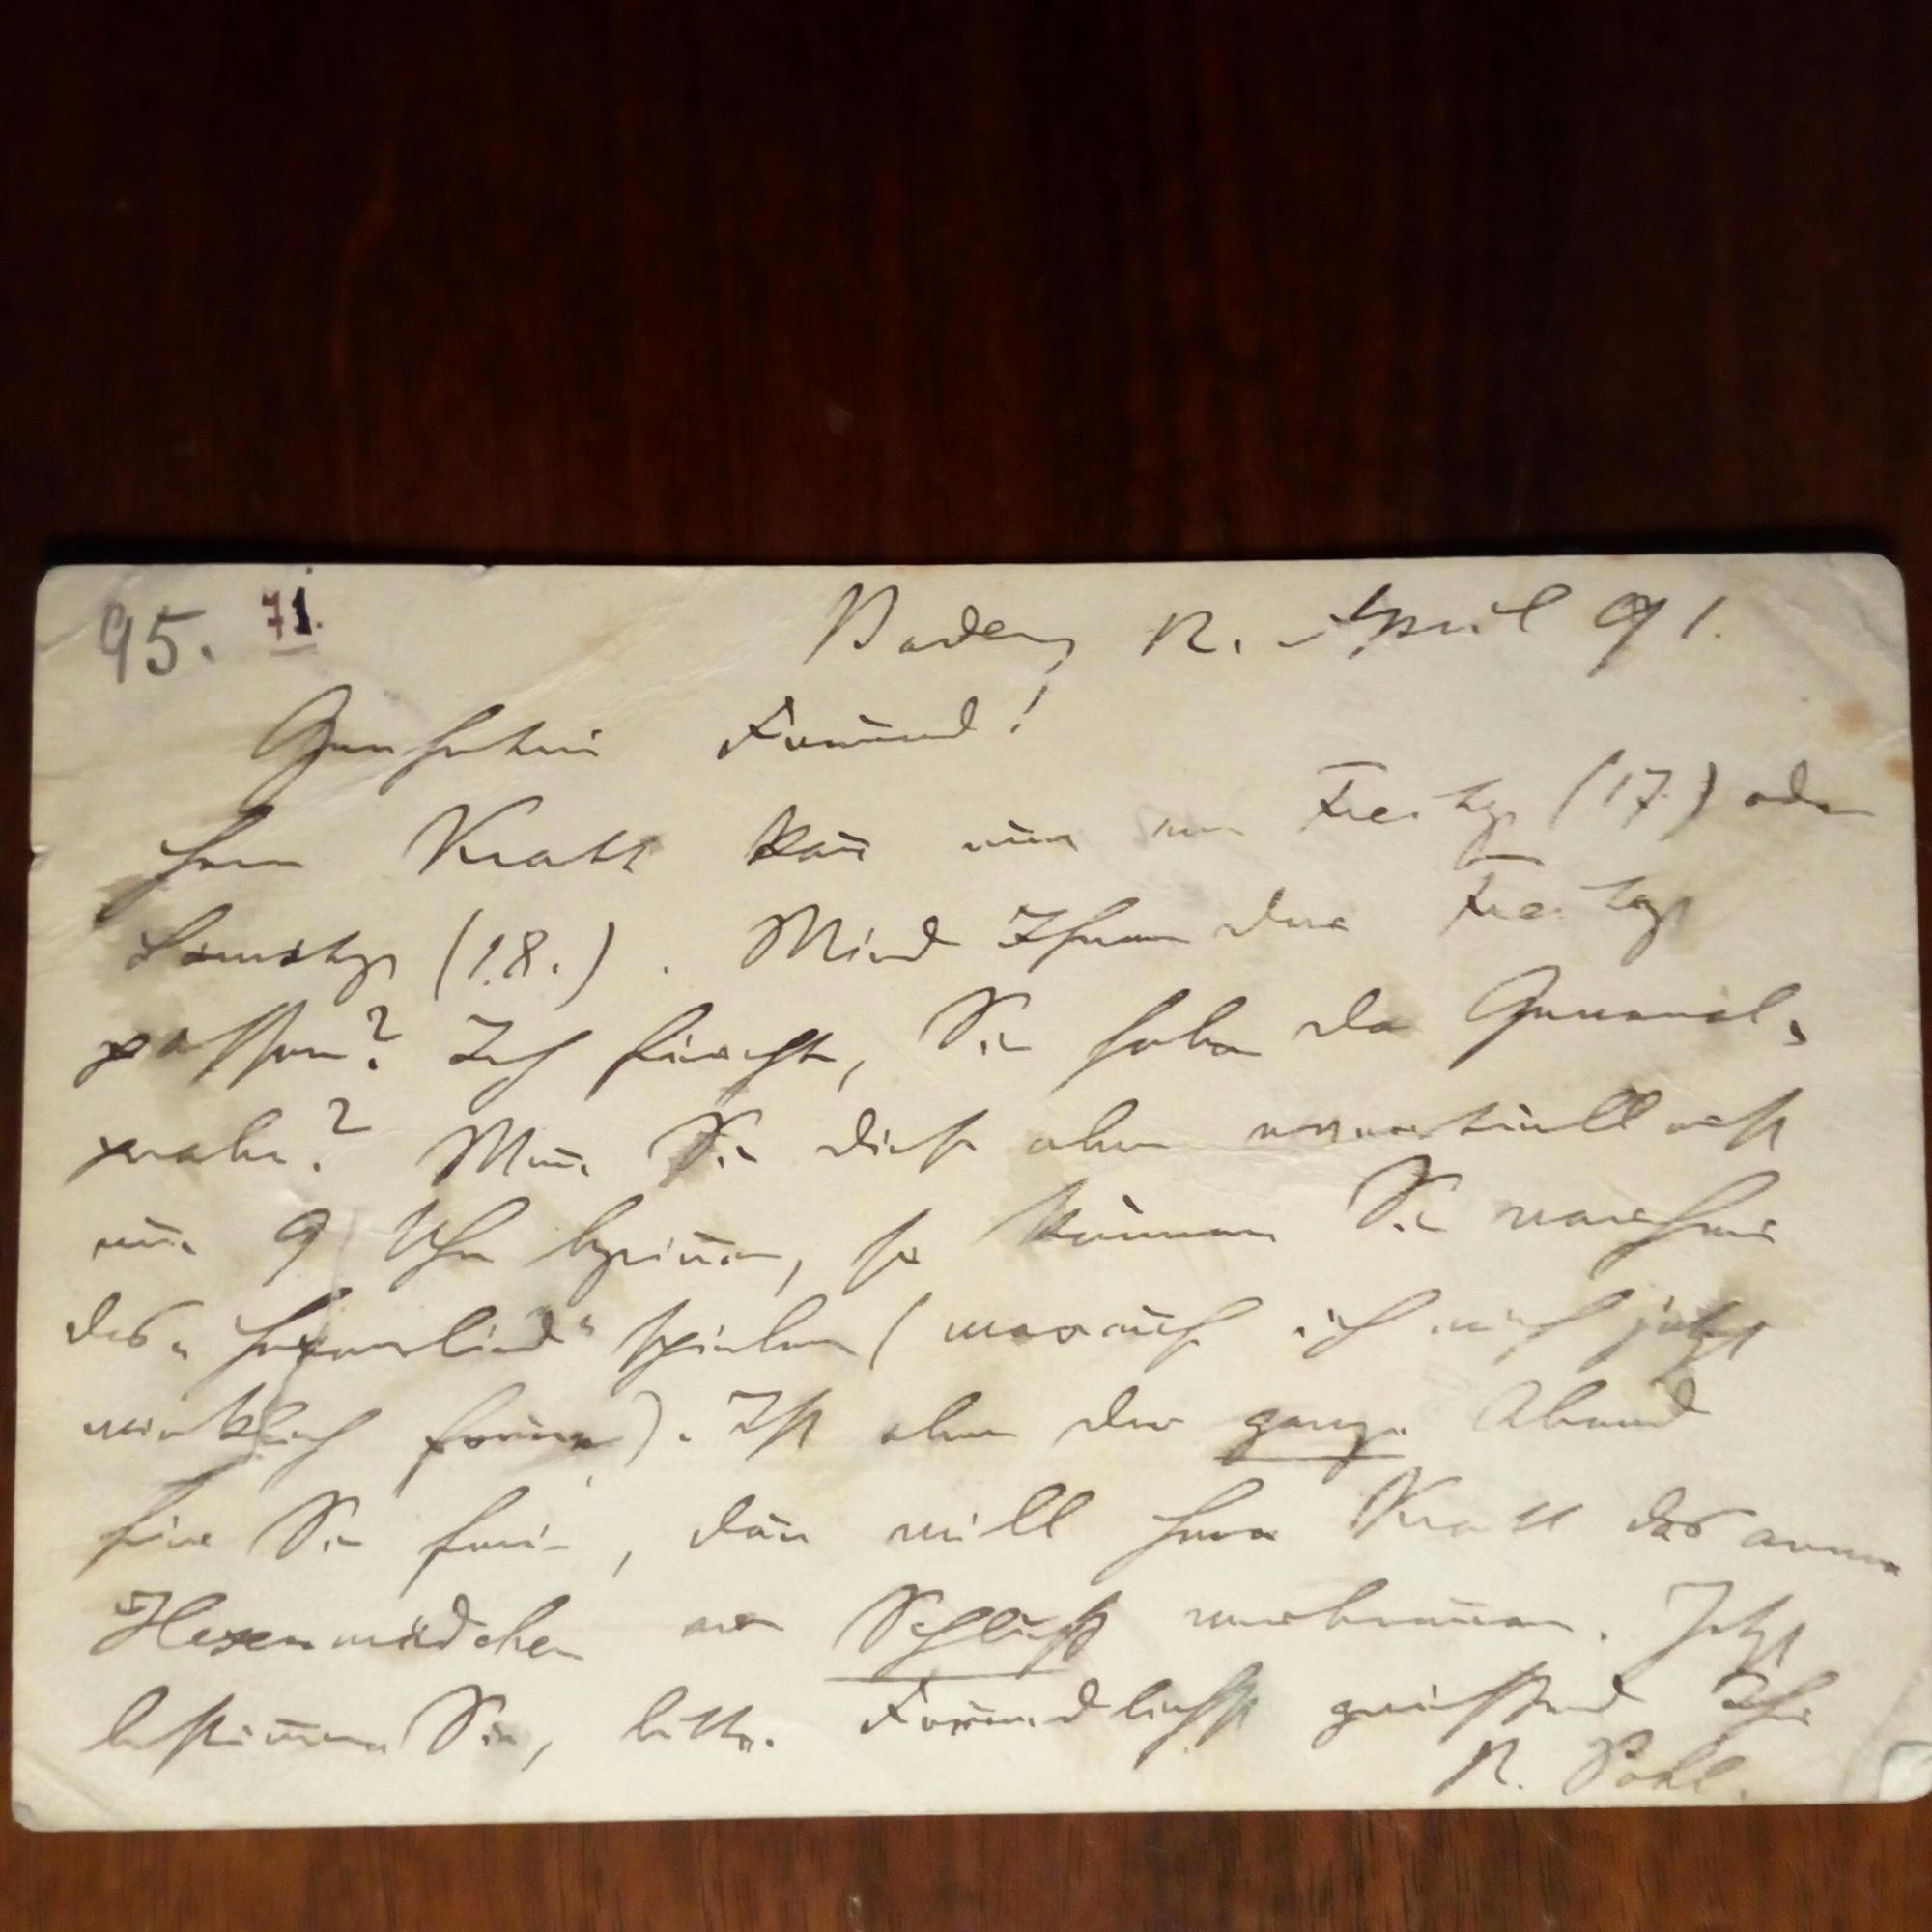 95. 71.
Baden, 12. April 91.
Verehrter Freund!
Herr Kratt kañ nur am Freitag (17.) oder
Samstag (18.). Wird Ihnen der Freitag
passen? Ich fürchte, Sie haben da General-
probe? Weñ Sie diese aber eventuell erst
um 9 Uhr begiñen, so können Sie vorher
das „Hexenlied“ spielen (worauf ich mich jetzt
wirklich freue). Ist aber der ganze Abend
für Sie frei, dañ will Herr Kratt das arme
Hexenmädchen am Schluß verbreñen. Jetzt
bestim̄en Sie, bitte. Freundlichst grüssend Ihr
R. Pohl.